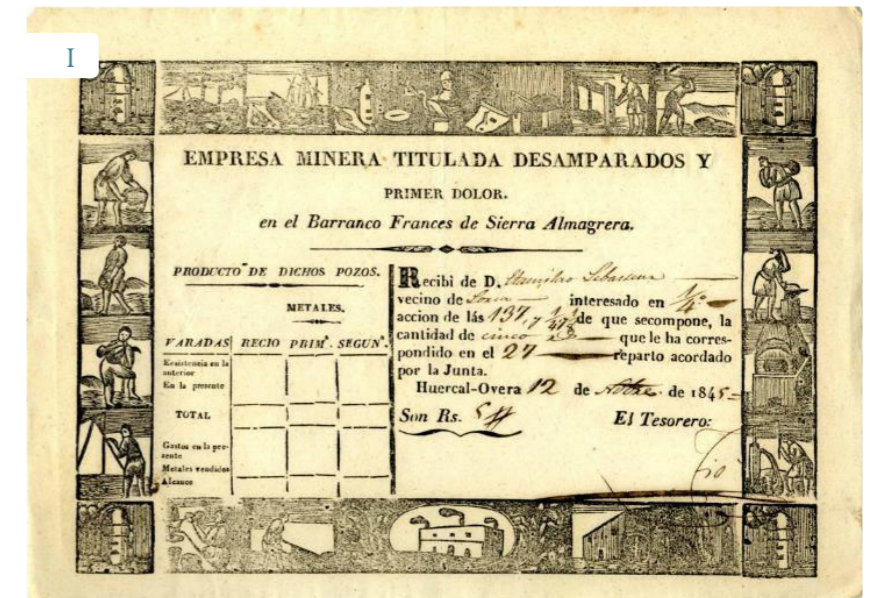 I
EMPRESA MINERA TITULADA DESAMPARADOS Y
PRIMER DOLOR.
en el Barranco Frances de Sierra Almagrera.
PRODUCTO DE DICHOS POZOS.
METALES.
VARADAS RECIO PRIMª. SEGUNª.
Existencia en la
anterior
En la presente
TOTAL
Gastos en la pre-
sente
Metales vendidos
Alcance
Recibi de D.
vecino de interesado en 1/4º
accion de lás 137, y de que secompone, la
cantidad de cinco que le ha corres-
pondido en el 27 reparto acordado
por la Junta.
Huercal-Overa 12 de Nobre. de 1845
Son Rs. 5
El Tesorero: